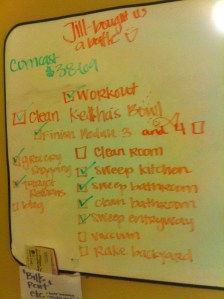 Jill-bought us
a bottle
Comcast
$38.69
Workout
Clean Keisha's Bowl
Finish Module 3 and 4
grocery
shopping
Target
Returns
Clean Room
Sweep kitchen
Sweep bathroom
Clean bathroom
Sweep entryway
Vacuum
Rake backyard
etc.